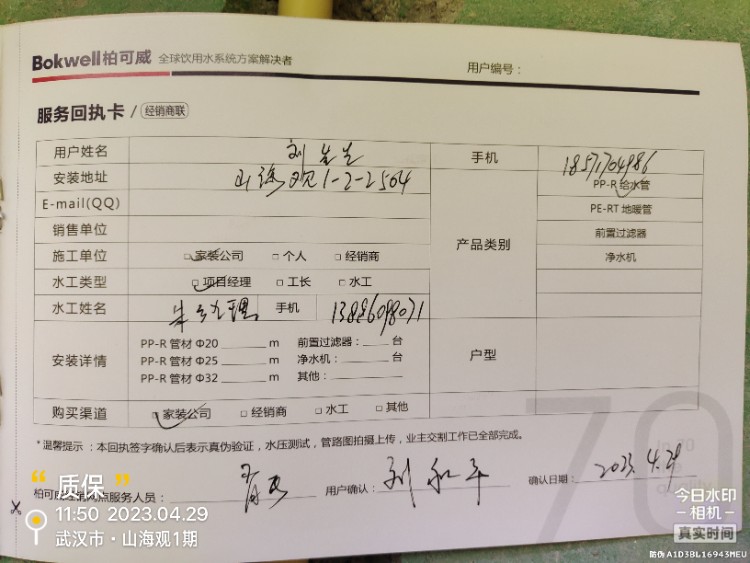 Bokwell柏可威 全球饮用水系统方案解决者
用户编号：
服务回执卡 / 经销商联
用户姓名 刘先生 手机 18571704986
安装地址 山海观1-2-2504 PP-R 给水管
E-mail(QQ) PE-RT 地暖管
销售单位 产品类别 前置过滤器
施工单位 □家装公司 □个人 □经销商 净水机
水工类型 □项目经理 □工长 □水工
水工姓名 朱经理 手机 13886098071
安装详情 户型
PP-R 管材 Φ20 ______ m 前置过滤器：____ 台
PP-R 管材 Φ25 ______ m 净水机：____ 台
PP-R 管材 Φ32 ______ m 其他：____
购买渠道 □家装公司 □经销商 □水工 □其他
*温馨提示：本回执签字确认后表示真伪验证，水压测试，管路图拍摄上传，业主交割工作已全部完成。
服务人员： 用户确认：刘和平 确认日期：2023.4.29
70
质保
11:50 2023.04.29
武汉市·山海观1期
今日水印
相机
真实时间
防伪 A1D3BL16943MEU